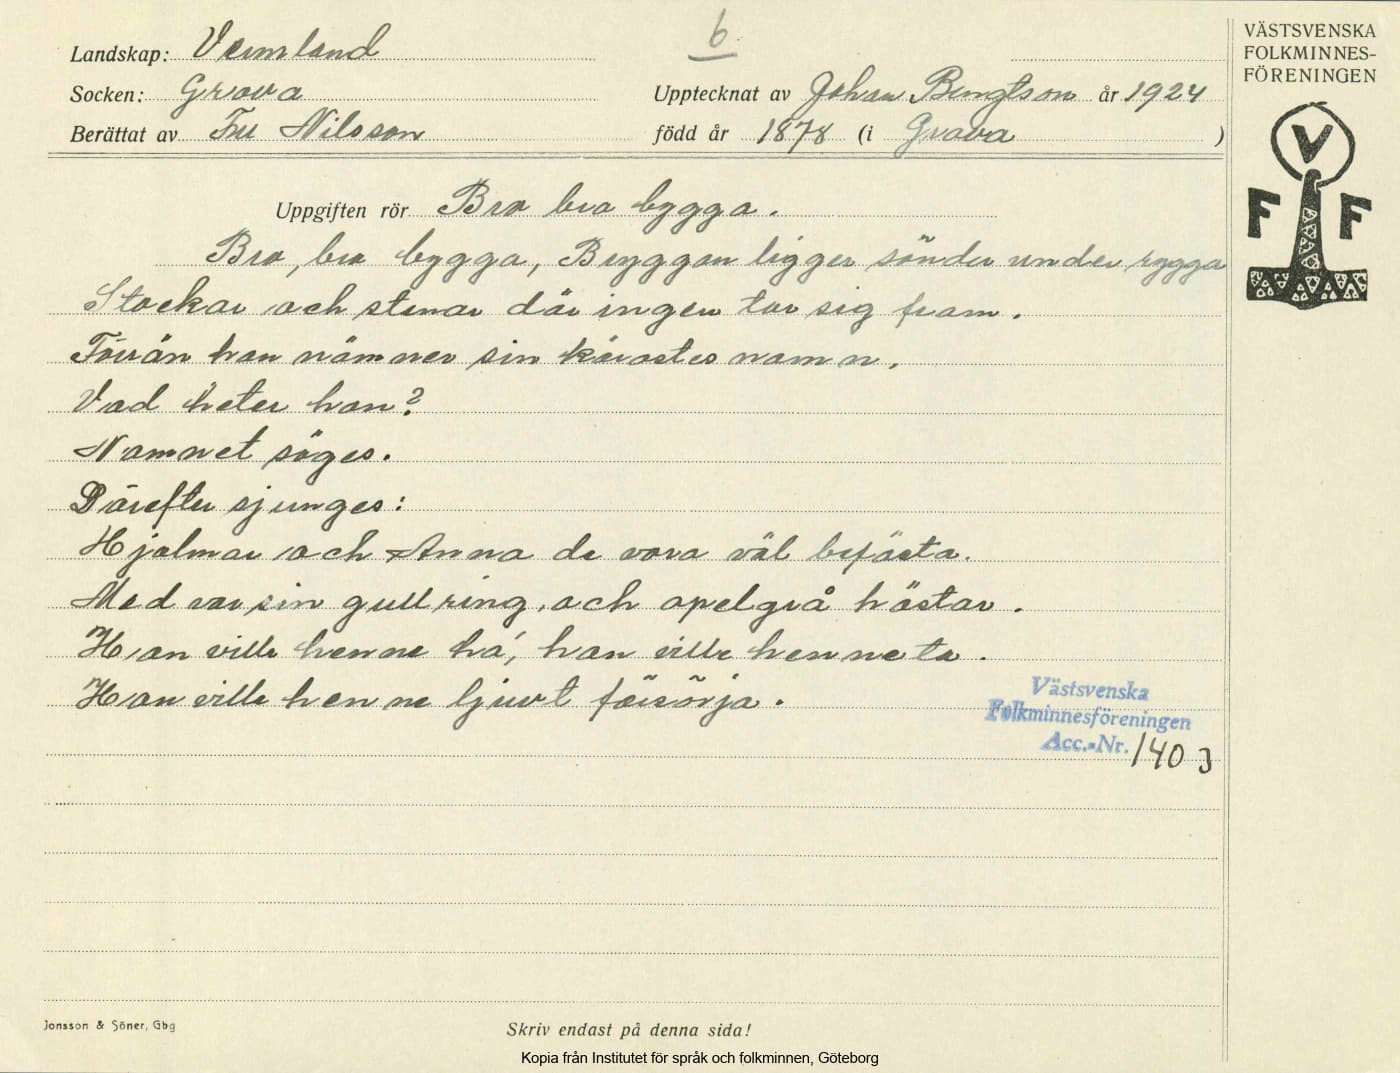 6
VÄSTSVENSKA
FOLKMINNES-
FÖRENINGEN
V
F F
Landskap: Vermland
Socken: Grava
Upptecknat av Johan Bengtson år 1924
Berättat av Fru Nilsson
född år 1878 (i Grava )
Uppgiften rör Bro bro bygga.
Bro, bro bygga, Bryggan ligger sönder under rygga
Stockar och stenar där ingen tar sig fram.
Förrän han nämner sin kärastes namn.
Vad heter han?
Namnet säges.
Därefter sjunges:
Hjalmar och Anna de vara väl befästa.
Med var sin gullring, och apelgrå hästar.
Han ville henne ha, han ville henne ta.
Han ville henne ljuvt försörja.
Västsvenska
Folkminnesföreningen
Acc.-Nr. 1403
Jonsson & Söner, Gbg
Skriv endast på denna sida!
Kopia från Institutet för språk och folkminnen, Göteborg